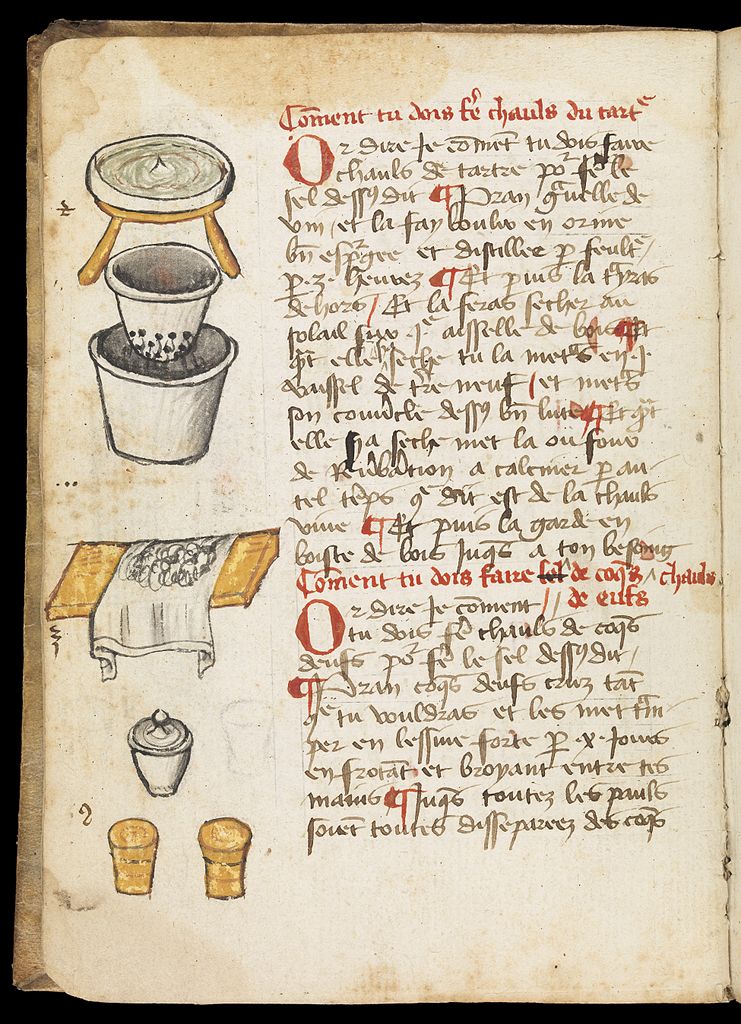 Com̄ent tu dois feᷣ chauls du tart᷑
Or dire Je com̄ent tu dois faire
chauls de tartre po᷑ feᷣ le
sel dessꝰ dit ¶ Pran g̃uelle de
vin / et la fay boulir en orine
bn̄ esp̃gee et distillee p̱ feult᷑ /
p̱ .z. heurez ¶ Et puis la tyras
dehors / Et la feras secher au
solail sus .j. aisselle de bois ¶ Et
q̃t elle seche tu la metr̃s en .j.
vaissel de tr̃re neuf / et metr̃s
son couūcle dessꝰ bn̄ lute ¶ Et q̃t
elle sa seche met la ou four
de a calciner p̱ au
tel tēps q̃ dit est de la chauls
vive ¶ Et puis la garde en
boiste de bois Jusq̃s a ton besoing
Com̄ent tu dois faire de coq̃s chauls
Or dire Je com̄ent // de eufs
tu dois feᷣ chauls de coq̃s
deufs po᷑ feᷣ le sel dessꝰ dit /
¶ Pran coq̃s deufs cruz tāt
q̃ tu vouldras et les met tr̃m
per en lessiue forte p̱ .x. Jours
en frotāt et broyant entre tes
mains ¶ Jusq̃s toutez les pauls
soiēt toutes dissepareez des coq̃s